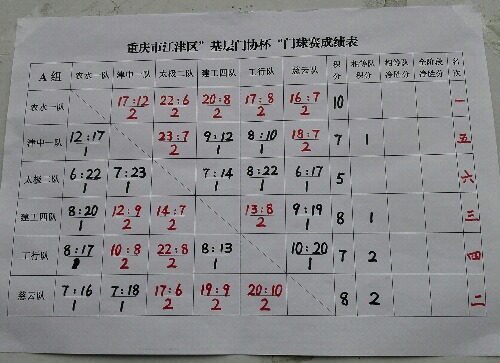 重庆市江津区"基层门协杯"门球赛成绩表
A组 农水一队 津中一队 太极二队 建工四队 工行队 慈云队 积分 相等队积分 相等队净胜分 全阶段净胜分 名次
农水一队 17:12 2 22:6 2 20:8 2 17:8 2 16:7 2 10 一
津中一队 12:17 1 23:7 2 9:12 1 8:10 1 18:7 2 7 1 五
太极二队 6:22 1 7:23 1 7:14 1 8:22 1 6:17 1 5 六
建工四队 8:20 1 12:9 2 14:7 2 13:8 2 9:19 1 8 1 三
工行队 8:17 1 10:8 2 22:8 2 8:13 1 10:20 1 7 2 四
慈云队 7:16 1 7:18 1 17:6 2 19:9 2 20:10 2 8 2 二